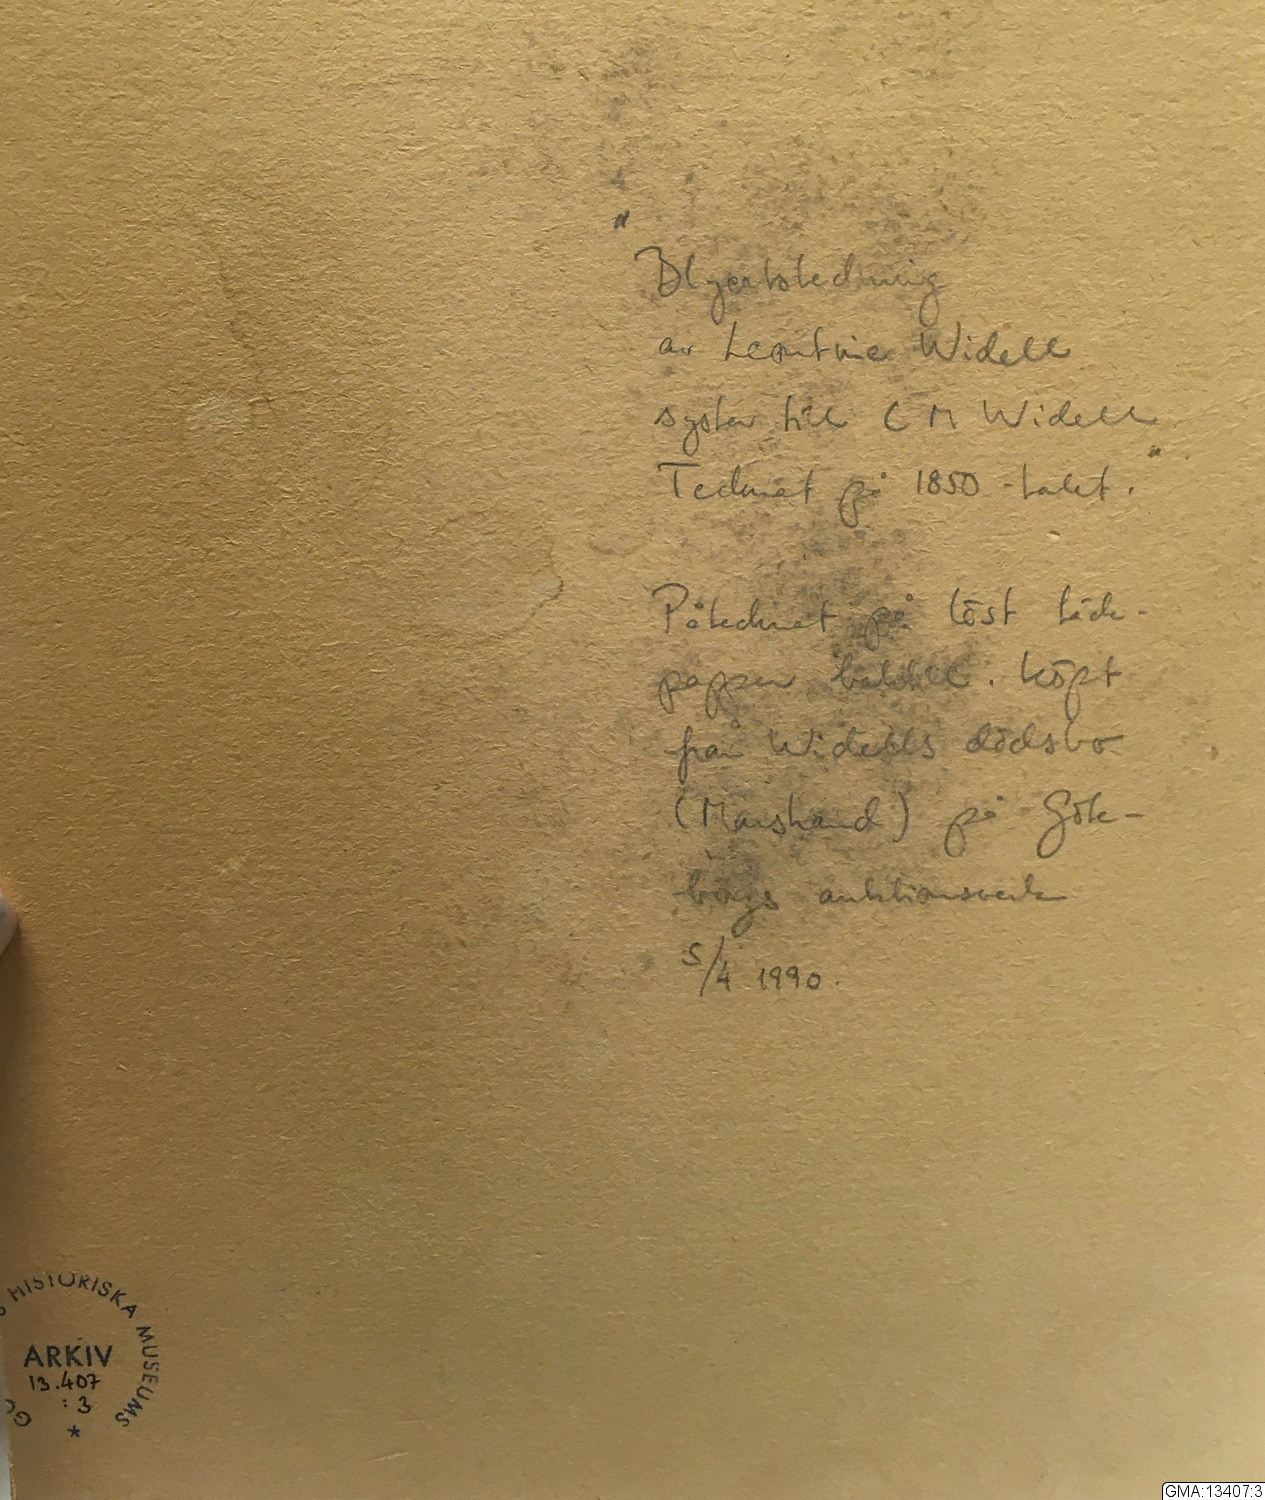 "
Blyertsteckning
av Leontine Widell
syster till C M Widell
Tecknat på 1850-talet."
Påtecknat på löst täck-
papper baktill. Köpt
från Widells dödsbo
(Marstrand) på Göte-
borgs auktionsverk
5/4 1990.
HISTORISKA MUSEUMS
ARKIV
13.407
:3
GMA:13407:3